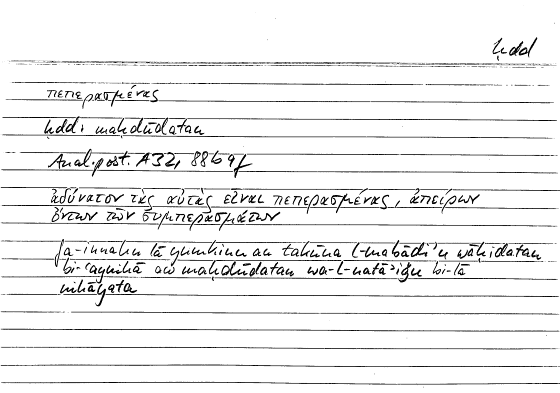 ḥdd
πεπερασμένας
ḥdd: maḥdūdatan
Anal. post. A 32, 88b 9f
ἀδύνατον τὰς αὐτὰς εἶναι πεπερασμένας, ἀπείρων
ὄντων τῶν συμπερασμάτων
fa-innahu lā yumkinu an takūna l-mabādiʾu wāḥidatan
bi-ʿaynihā aw maḥdūdatan wa-l-natāʾiǧu bi-lā
nihāyata